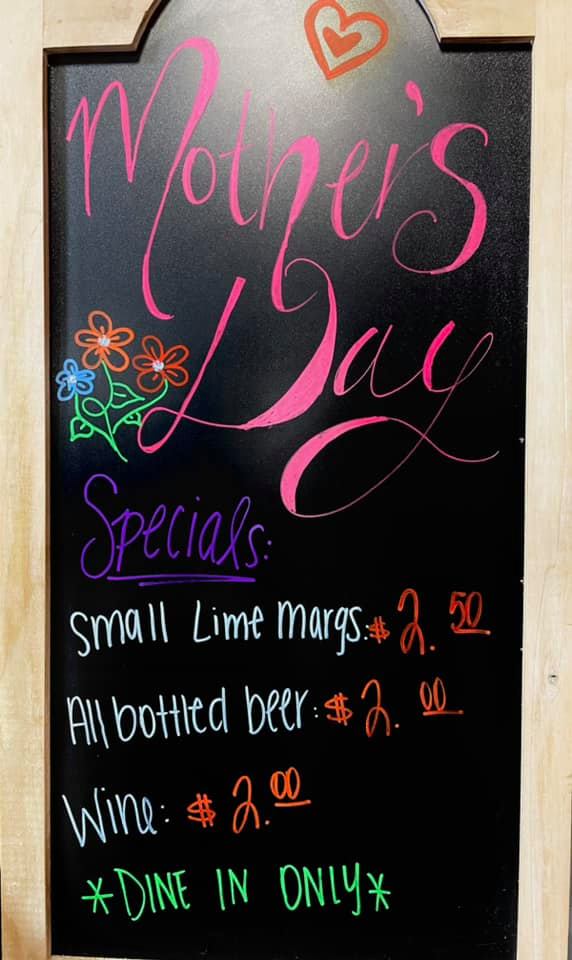 Mother's
Day
Specials:
Small Lime Margs: $2.50
All bottled beer: $2.00
Wine: $2.00
*DINE IN ONLY*